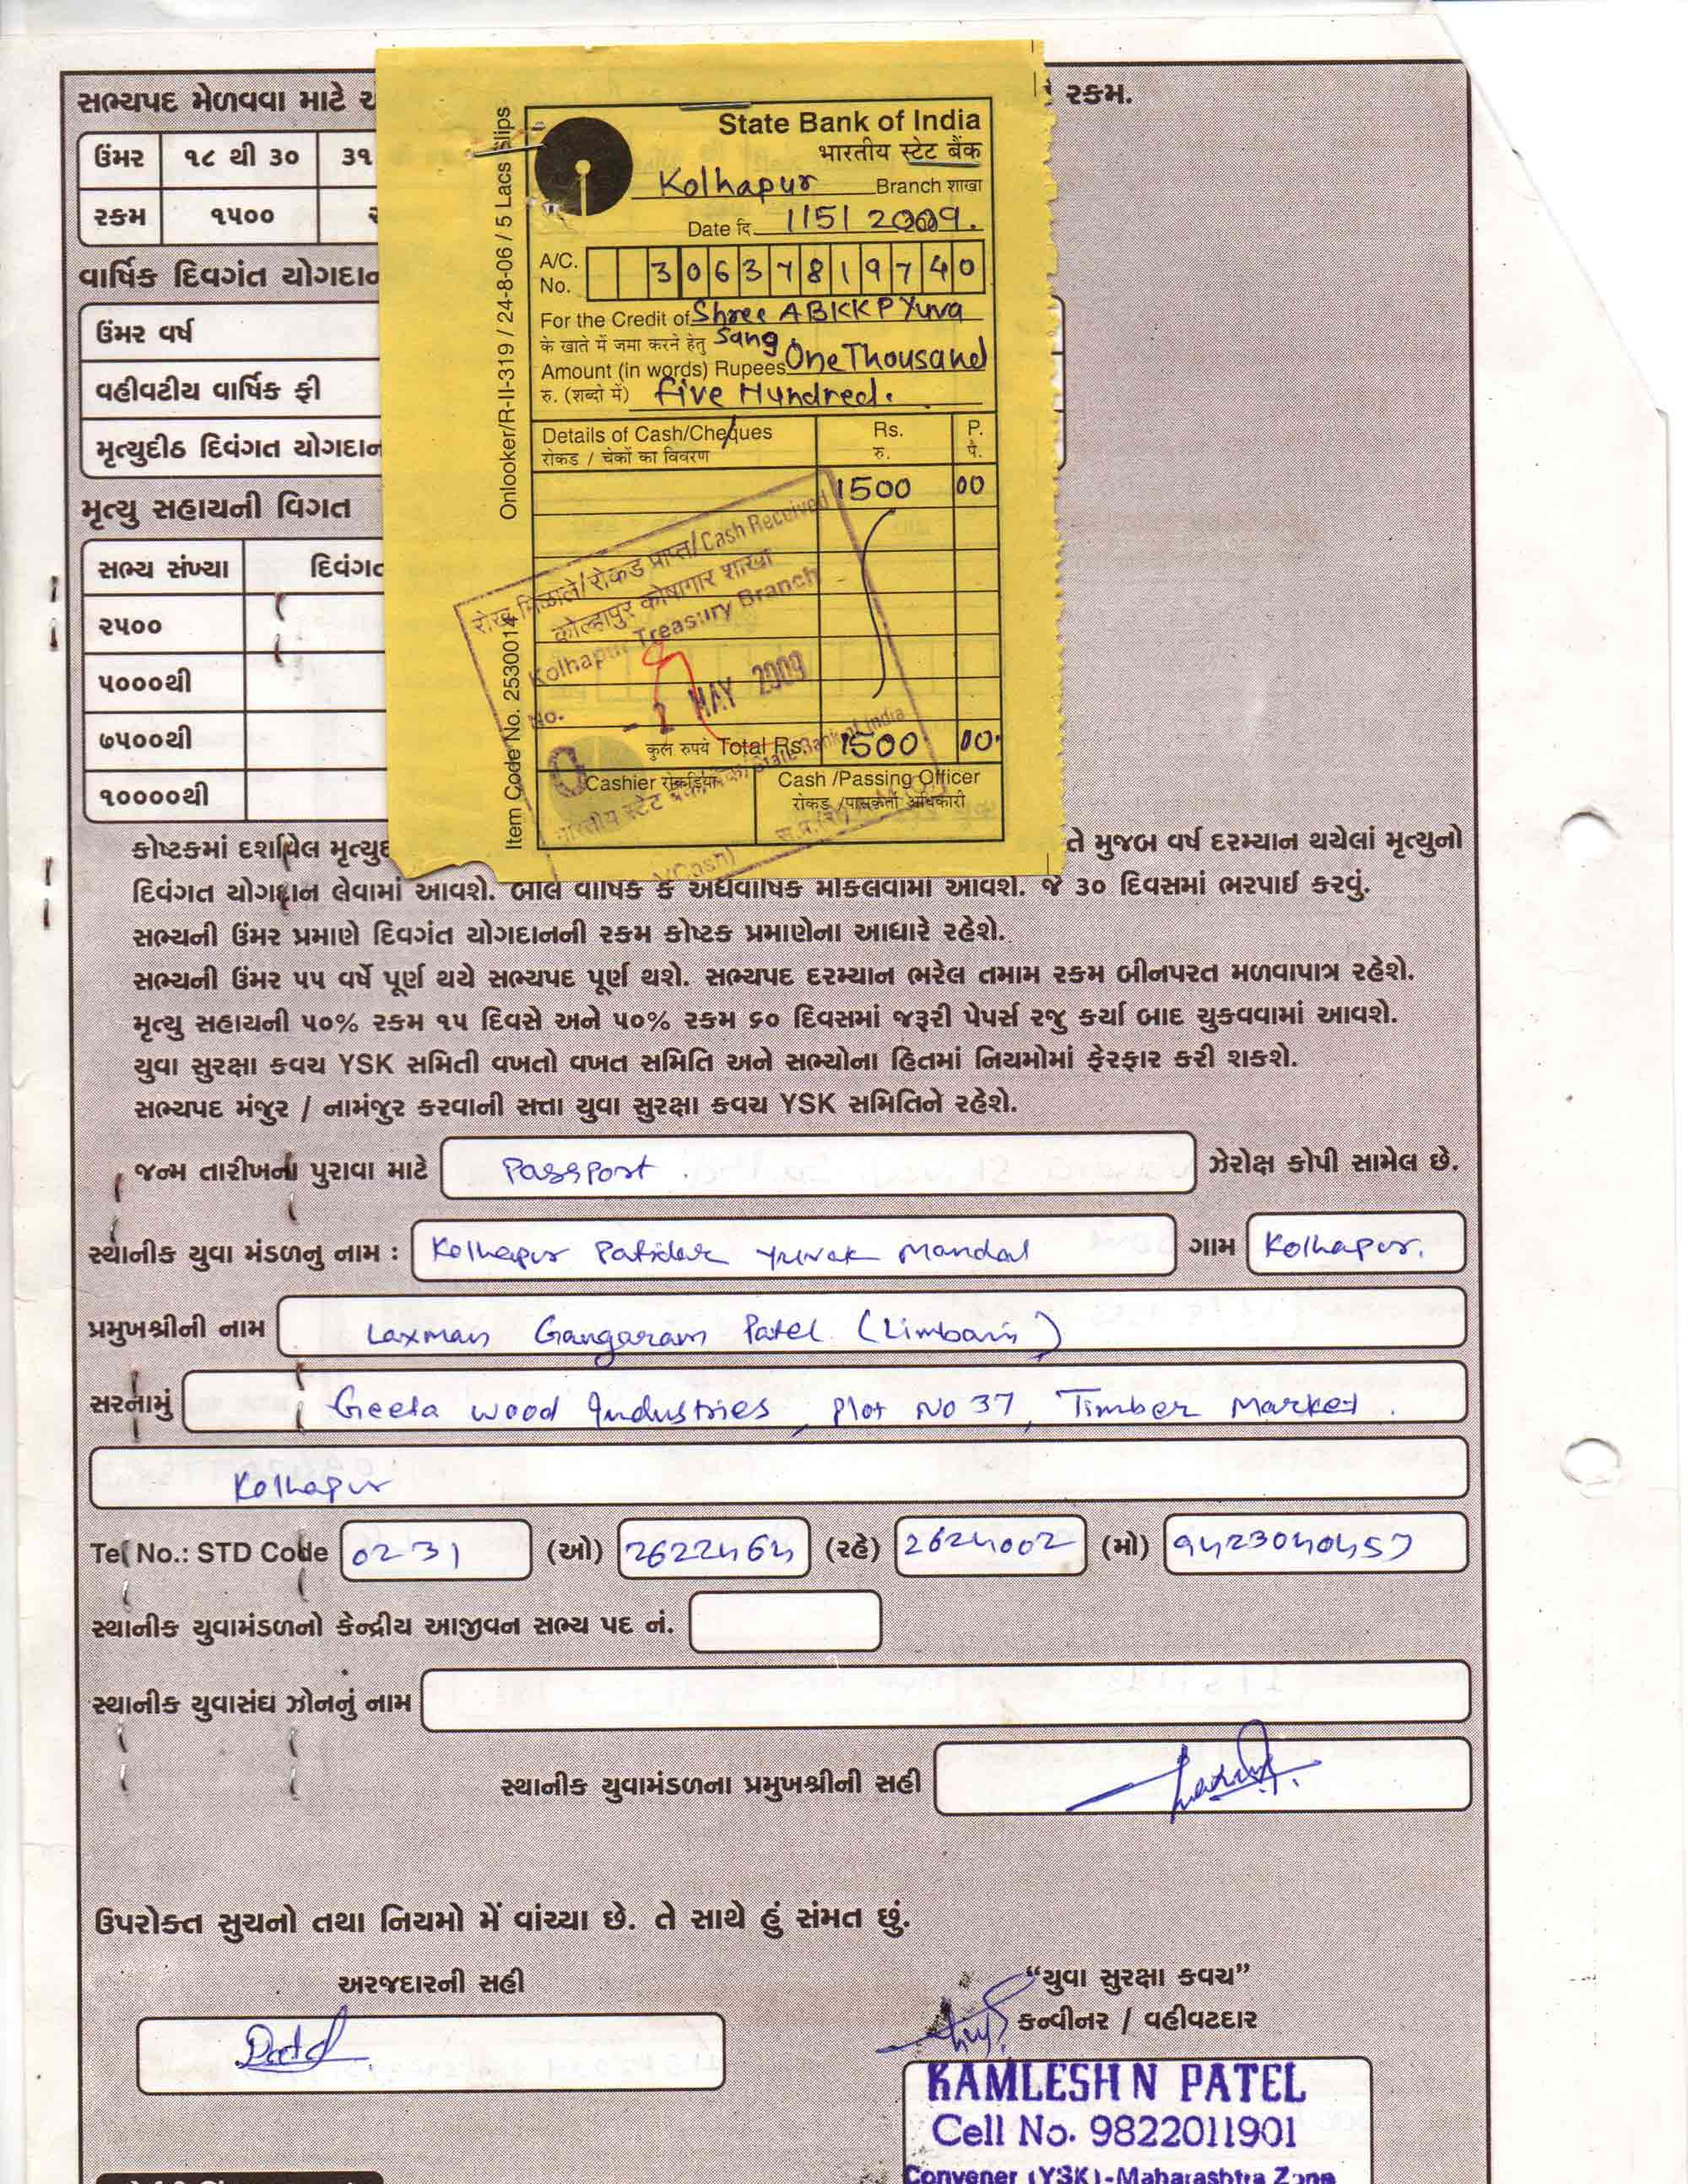 સભ્યપદ મેળવવા માટે
રકમ.
ઉંમર ૧૮ થી ૩૦ ૩૧
રકમ ૧૫૦૦
વાર્ષિક દિવગંત યોગદાન
ઉંમર વર્ષ
વહીવટીય વાર્ષિક ફી
મૃત્યુદીઠ દિવંગત યોગદાન
મૃત્યુ સહાયની વિગત
સભ્ય સંખ્યા દિવંગત
૨૫૦૦
૫૦૦૦થી
૭૫૦૦થી
૧૦૦૦૦થી
Item Code No. 2530014 Onlooker/R-II-319 / 24-8-06 / 5 Lacs Slips
State Bank of India
भारतीय स्टेट बैंक
Kolhapur Branch शाखा
Date दि. 1/5/2009.
A/C. No. 30637819740
For the Credit of Shree ABKKP Yuva
के खाते में जमा करने हेतु Sang
Amount (in words) Rupees One Thousand
रु. (शब्दो में) five Hundred.
Details of Cash/Cheques Rs. P.
रोकड / चेकों का विवरण रु. पै.
1500 00
रोख मिळाले/रोकड प्राप्त/Cash Received
कोल्हापुर कोषागार शाखा
Kolhapur Treasury Branch
No.
- 2 MAY 2009
कुल रुपये Total Rs. 1500 00.
Cashier रोकड़िया Cash /Passing Officer
रोकड /पासकर्ता अधिकारी
(Cash)
કોષ્ટકમાં દર્શાવેલ તે મુજબ વર્ષ દરમ્યાન થયેલાં મૃત્યુનો
દિવંગત યોગદાન લેવામાં આવશે. બીલ વાર્ષિક કે અર્ધવાર્ષિક મોકલવામાં આવશે. જે ૩૦ દિવસમાં ભરપાઈ કરવું.
સભ્યની ઉંમર પ્રમાણે દિવગંત યોગદાનની રકમ કોષ્ટક પ્રમાણેના આધારે રહેશે.
સભ્યની ઉંમર ૫૫ વર્ષે પૂર્ણ થયે સભ્યપદ પૂર્ણ થશે. સભ્યપદ દરમ્યાન ભરેલ તમામ રકમ બીનપરત મળવાપાત્ર રહેશે.
મૃત્યુ સહાયની ૫૦% રકમ ૧૫ દિવસે અને ૫૦% રકમ ૬૦ દિવસમાં જરૂરી પેપર્સ રજુ કર્યા બાદ ચુકવવામાં આવશે.
યુવા સુરક્ષા કવચ YSK સમિતી વખતો વખત સમિતિ અને સભ્યોના હિતમાં નિયમોમાં ફેરફાર કરી શકશે.
સભ્યપદ મંજુર / નામંજુર કરવાની સત્તા યુવા સુરક્ષા કવચ YSK સમિતિને રહેશે.
જન્મ તારીખના પુરાવા માટે Passport. ઝેરોક્ષ કોપી સામેલ છે.
સ્થાનીક યુવા મંડળનુ નામ : Kolhapur Patidar Yuvak Mandal ગામ Kolhapur.
પ્રમુખશ્રીની નામ Laxman Gangaram Patel (Limbani)
સરનામું Geeta wood Industries, Plot No 37, Timber Market.
Kolhapur
Tel No.: STD Code 0231 (ઓ) 2622464 (રહે) 2624002 (મો) 9423040457
સ્થાનીક યુવામંડળનો કેન્દ્રીય આજીવન સભ્ય પદ નં.
સ્થાનીક યુવાસંઘ ઝોનનું નામ
સ્થાનીક યુવામંડળના પ્રમુખશ્રીની સહી
ઉપરોક્ત સુચનો તથા નિયમો મેં વાંચ્યા છે. તે સાથે હું સંમત છું.
અરજદારની સહી
“યુવા સુરક્ષા કવચ”
કન્વીનર / વહીવટદાર
KAMLESH N PATEL
Cell No. 9822011901
Convener (YSK)-Maharashtra Zone